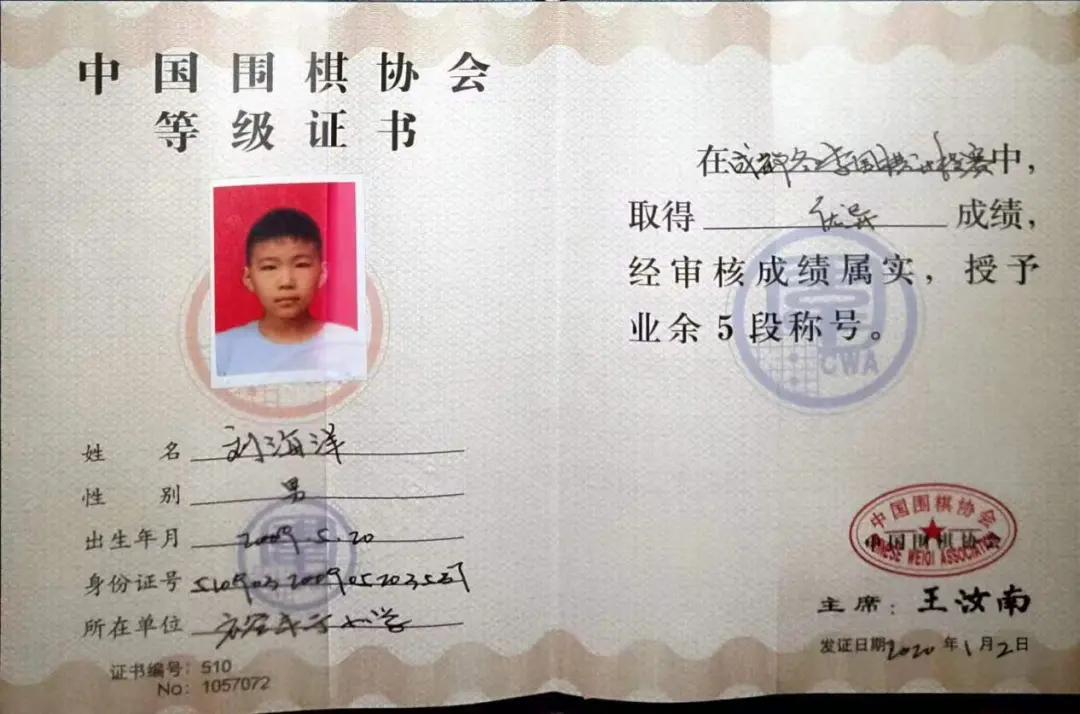 中国围棋协会
等级证书
姓 名 刘海洋
性 别 男
出生年月 2009.5.20
身份证号
所在单位 小学
证书编号：510
No：1057072
在成都 围棋 赛中，
取得 优异 成绩，
经审核成绩属实，授予
业余5段称号。
CWA
中国围棋协会
CHINESE WEIQI ASSOCIATION
中国围棋协会
主席：王汝南
发证日期2020年1月2日